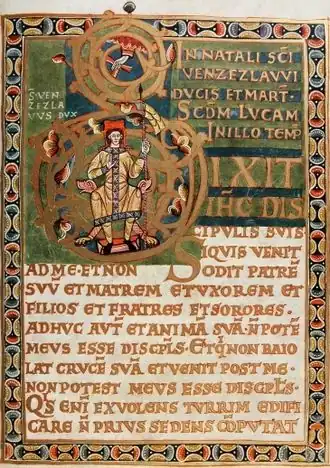 IN NATALI SCI
VENZEZLAVVI
DVCIS ET MART·
SCDM LVCAM
IN ILLO TEMP
S·VEN
ZEZLA
VVS DVX
DIXIT
IHC DIS
CIPVLIS SVIS
SIQVIS VENIT
AD ME·ET NON ODIT PATRĒ
SVV ET MATREM ET VXOREM ET
FILIOS ET FRATRES ET SORORES·
ADHVC AVT̄ ET ANIMĀ SVĀ·N̄ POTĒ
MEVS ESSE DISCPLS· ET Q̄ NON BAIO
LAT CRVCĒ SVĀ ET VENIT POST ME·
NON POTEST MEVS ESSE DISCPLS·
QS ENĪ EX VOLENS TVRRIM EDIFI
CARE N̄ PRIVS SEDENS CŌPVTAT